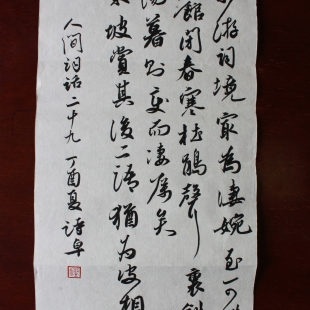 少游词境最为凄婉至可
馆闭春寒杜鹃声里斜
阳暮则变而凄厉矣
东坡赏其后二语犹为皮相
人间词话二十九 丁酉夏 诗卓